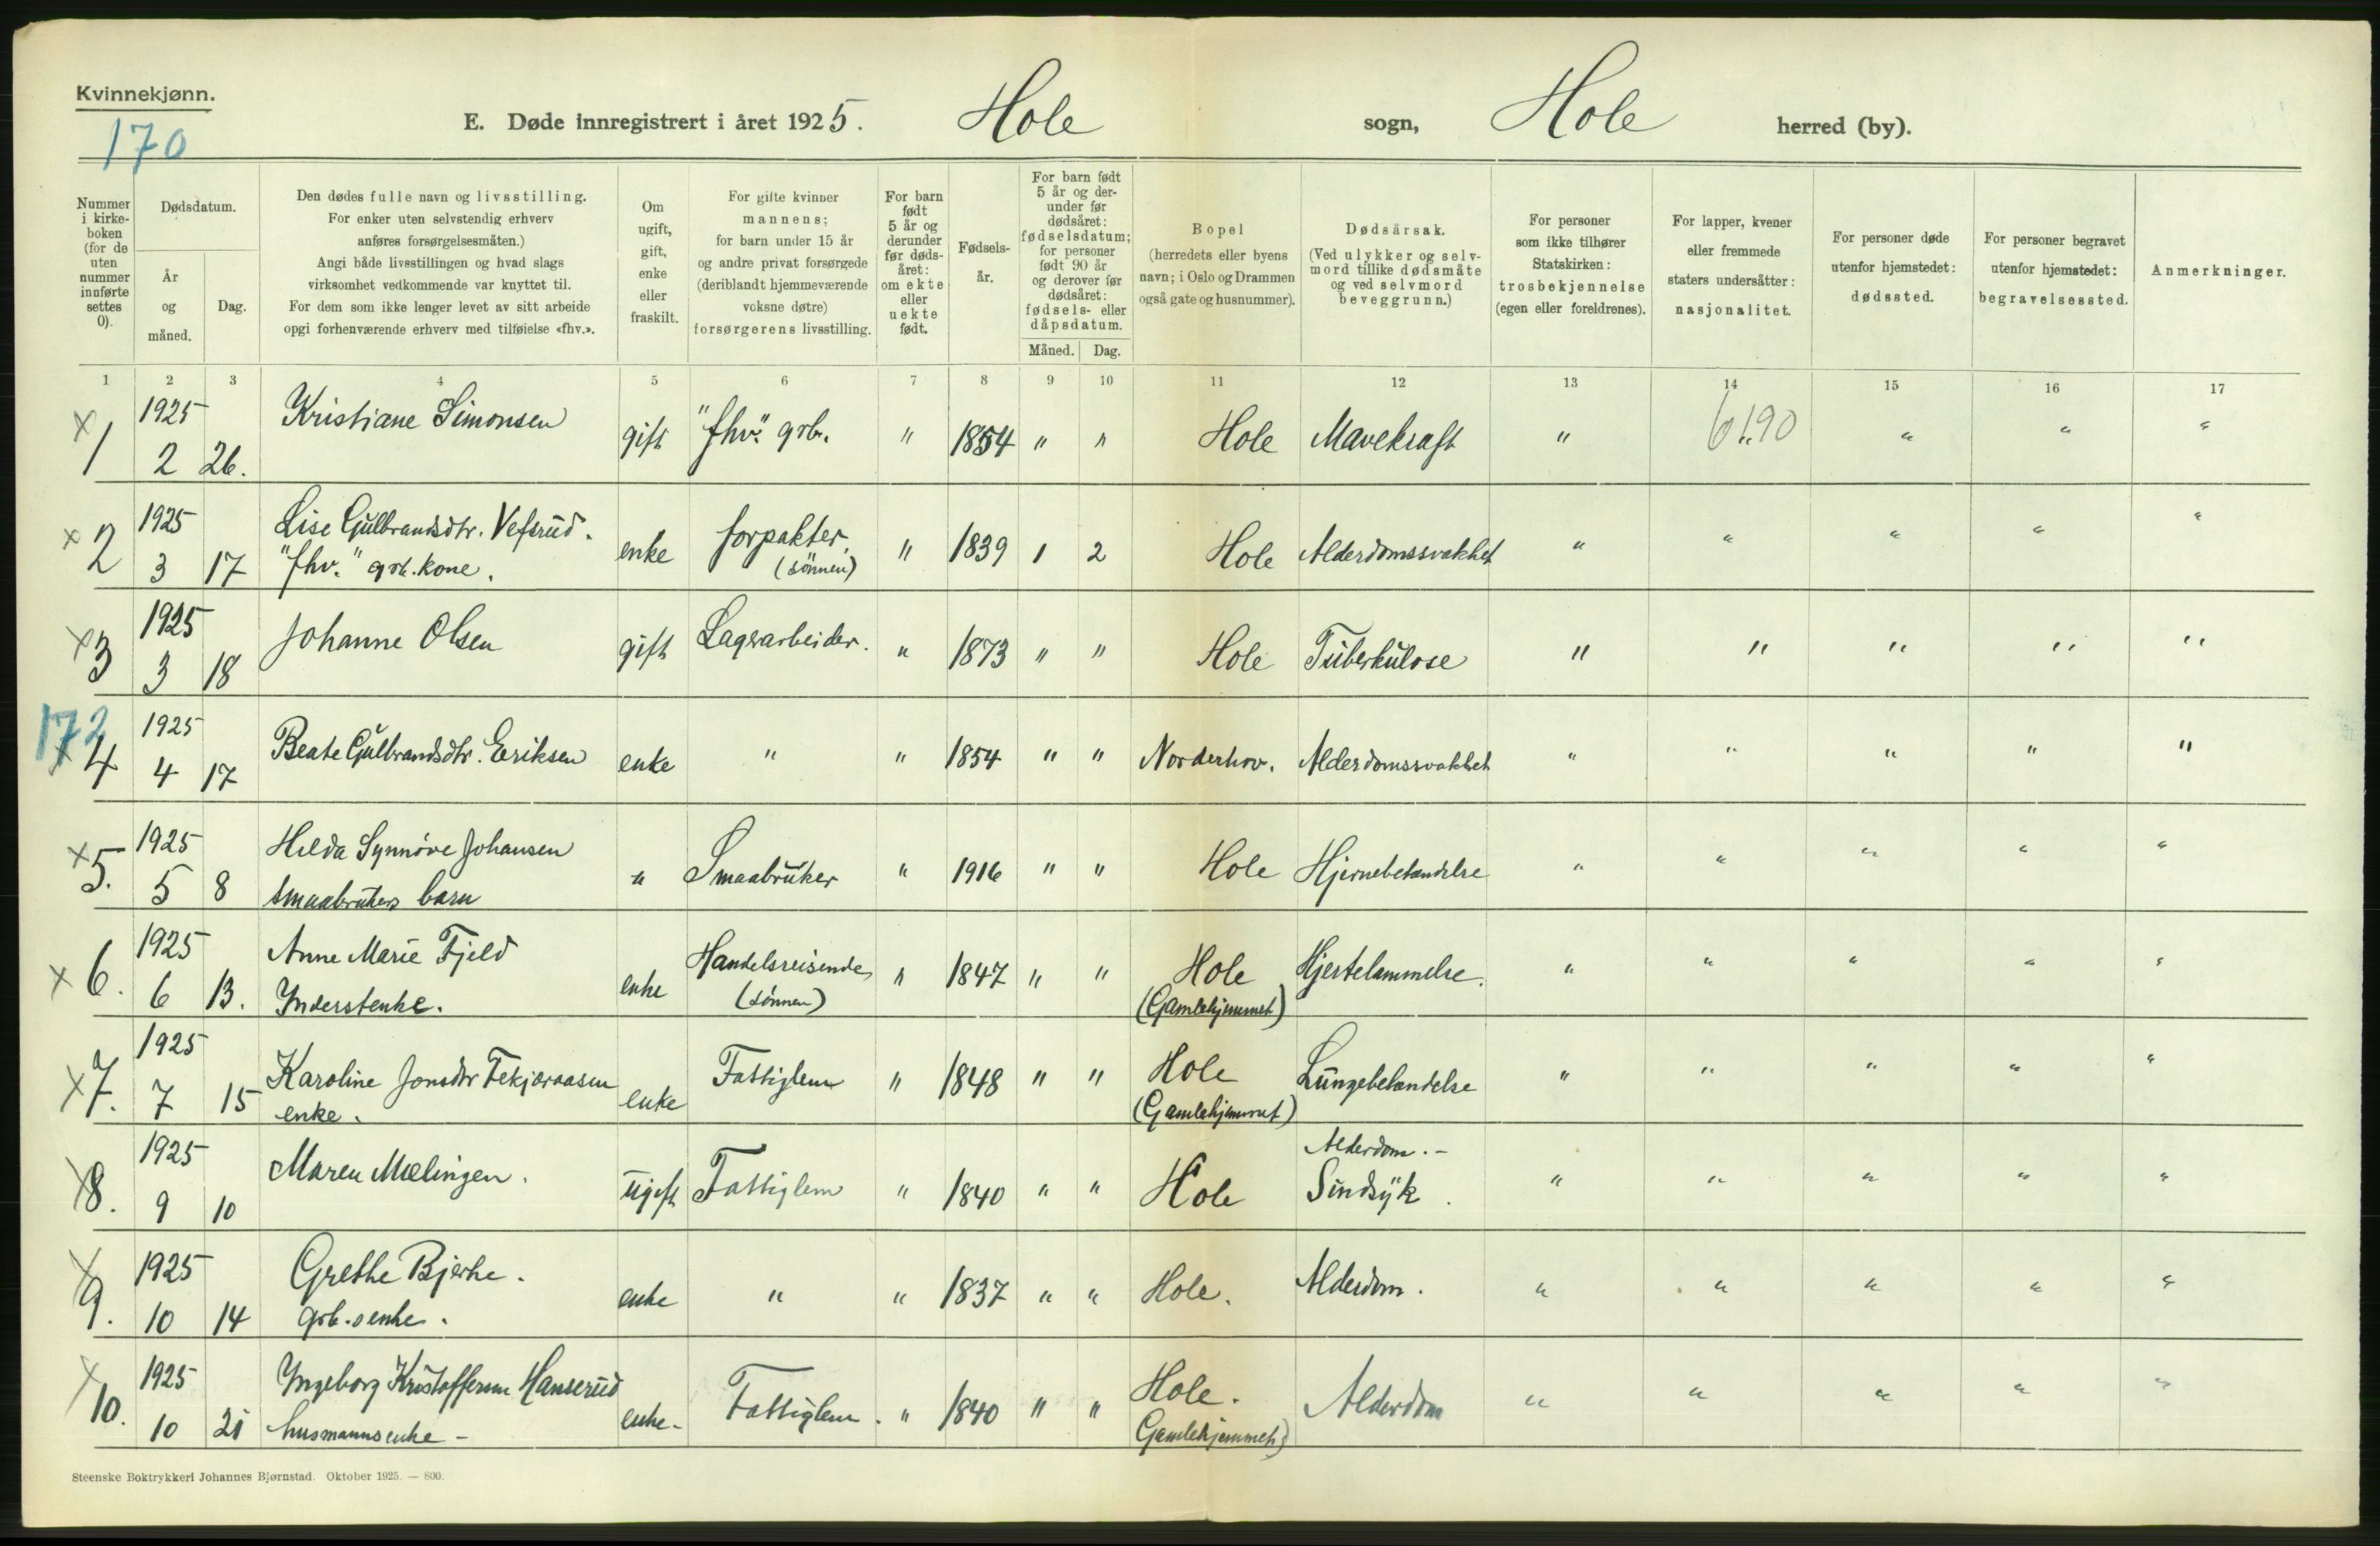 Kvinnekjønn.
170
E. Døde innregistrert i året 1925. Hole sogn, Hole herred (by).
Nummer i kirkeboken (for de uten nummer innførte settes 0).
Dødsdatum.
År og måned.
Dag.
Den dødes fulle navn og livsstilling.
For enker uten selvstendig erhverv
anføres forsørgelsesmåten.)
Angi både livsstillingen og hvad slags
virksomhet vedkommende var knyttet til.
For dem som ikke lenger levet av sitt arbeide
opgi forhenværende erhverv med tilføielse «fhv.».
Om
ugift,
gift,
enke
eller
fraskilt.
For gifte kvinner
mannens;
for barn under 15 år
og andre privat forsørgede
(deriblandt hjemmeværende
voksne døtre)
forsørgerens livsstilling.
For barn
født
5 år og
derunder
før døds-
året:
om ekte
eller
uekte
født.
Fødsels-
år.
For barn født
5 år og der-
under før
dødsåret:
fødselsdatum;
for personer
født 90 år
og derover før
dødsåret:
fødsels- eller
dåpsdatum.
Måned. Dag.
Bopel
(herredets eller byens
navn; i Oslo og Drammen
også gate og husnummer).
Dødsårsak.
(Ved ulykker og selv-
mord tillike dødsmåte
og ved selvmord
beveggrunn.)
For personer
som ikke tilhører
Statskirken:
trosbekjennelse
(egen eller foreldrenes).
For lapper, kvener
eller fremmede
staters undersåtter:
nasjonalitet.
For personer døde
utenfor hjemstedet:
dødssted.
For personer begravet
utenfor hjemstedet:
begravelsessted.
Anmerkninger.
1 2 3 4 5 6 7 8 9 10 11 12 13 14 15 16 17
x 1 1925 2 26. Kristiane Simonsen gift "fhv." grb. " 1854 " " Hole Mavekraft " 6190 " " " "
x 2 1925 3 17 Lise Gulbrandsdtr. Vefsrud.
"fhv." grb. kone. enke forpakter (sönnen) " 1839 1 2 Hole Alderdomssvakhet " " " " "
x 3 1925 3 18 Johanne Olsen gift Lagerarbeider. " 1873 " " Hole Tuberkulose " " " " "
172
x 4 1925 4 17 Beate Gulbrandsdtr. Eriksen enke " " 1854 " " Norderhov. Alderdomssvakhet " " " " "
x 5. 1925 5 8 Hilda Synnöve Johansen
smaabrukers barn " Smaabruker " 1916 " " Hole Hjernebetændelse " " " " "
x 6. 1925 6 13. Anne Marie Fjeld
Inderstenke. enke Handelsreisende (sönnen) " 1847 " " Hole (Gamlehjemmet) Hjertelammelse. " " " " "
x 7. 1925 7 15 Karoline Jonsdtr
enke. enke Fattiglem " 1848 " " Hole (Gamlehjemmet) Lungebetændelse " " " " "
x 8. 1925 9 10 Maren Mælingen. ugift Fattiglem " 1840 " " Hole Alderdom. -
Sindsyk. " " " " "
x 9. 1925 10 14 Grethe Bjerke.
grb.s enke. enke " " 1837 " " Hole. Alderdom. " " " " "
x 10. 1925 10 21 Ingeborg Kristoffersen Hanserud
husmannsenke - enke - Fattiglem. " 1840 " " Hole.
Gamlehjemmet) Alderdom " " " " "
Steenske Boktrykkeri Johannes Bjørnstad. Oktober 1925. — 800.